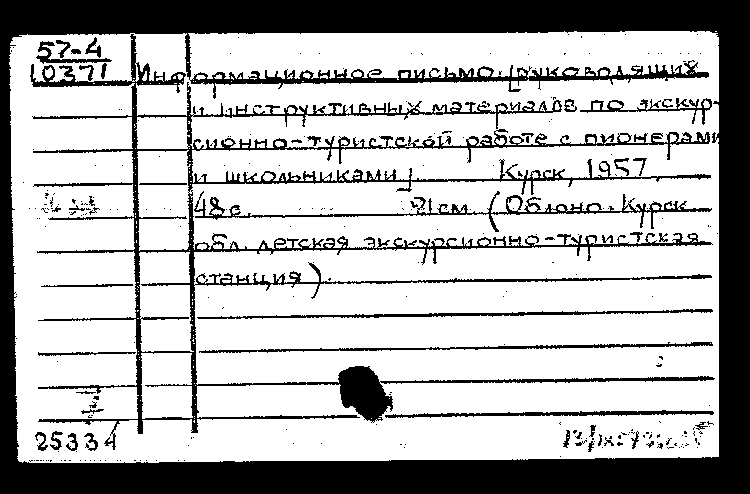 57-4
10371 Информационное письмо. [руководящих
и инструктивных материалов по экскур-
сионно-туристской работе с пионерами
и школьниками] Курск, 1957.
48 с. 21 см (Облоно. Курск.
обл. детская экскурсионно-туристская
станция).
25334